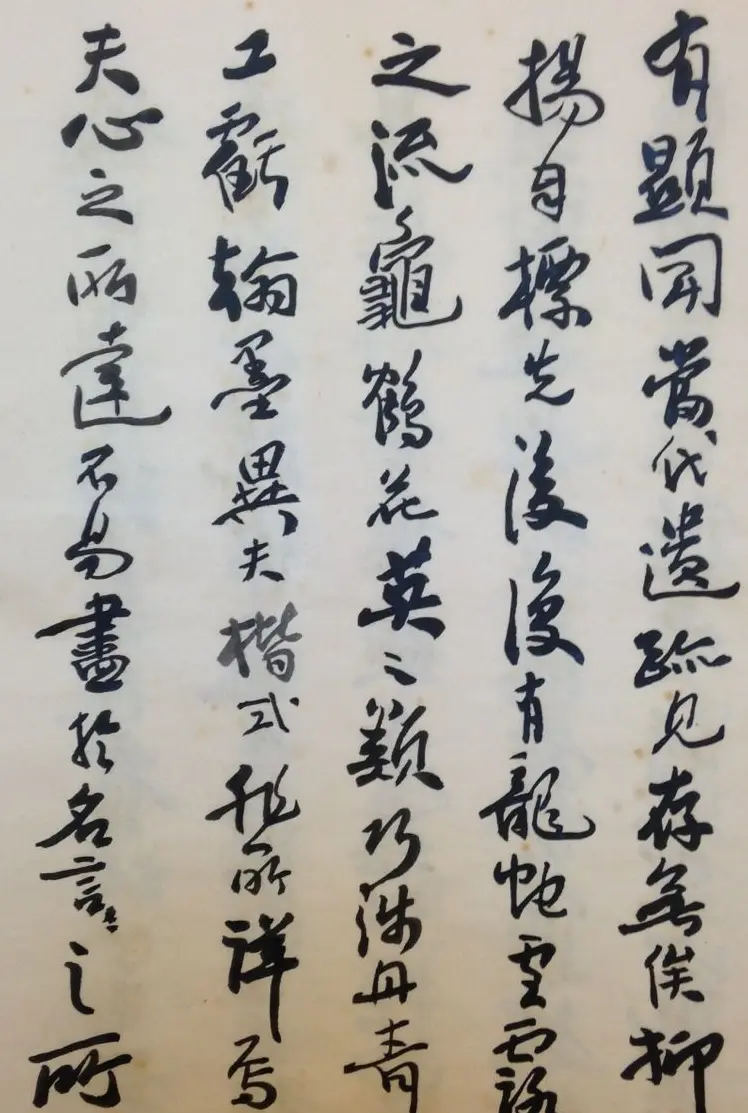 有顯聞當代遺跡見存無俟抑
揚自標先後復有龍虵雲露
之流龜鶴花英之類巧涉丹青
工虧翰墨異夫楷式非所詳焉
夫心之所達不易盡於名言〻之所